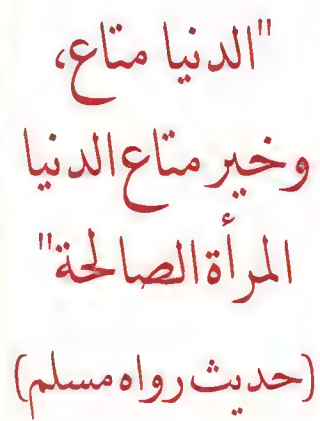 "الدنيا متاع،
وخير متاع الدنيا
المرأة الصالحة"
(حديث رواه مسلم)